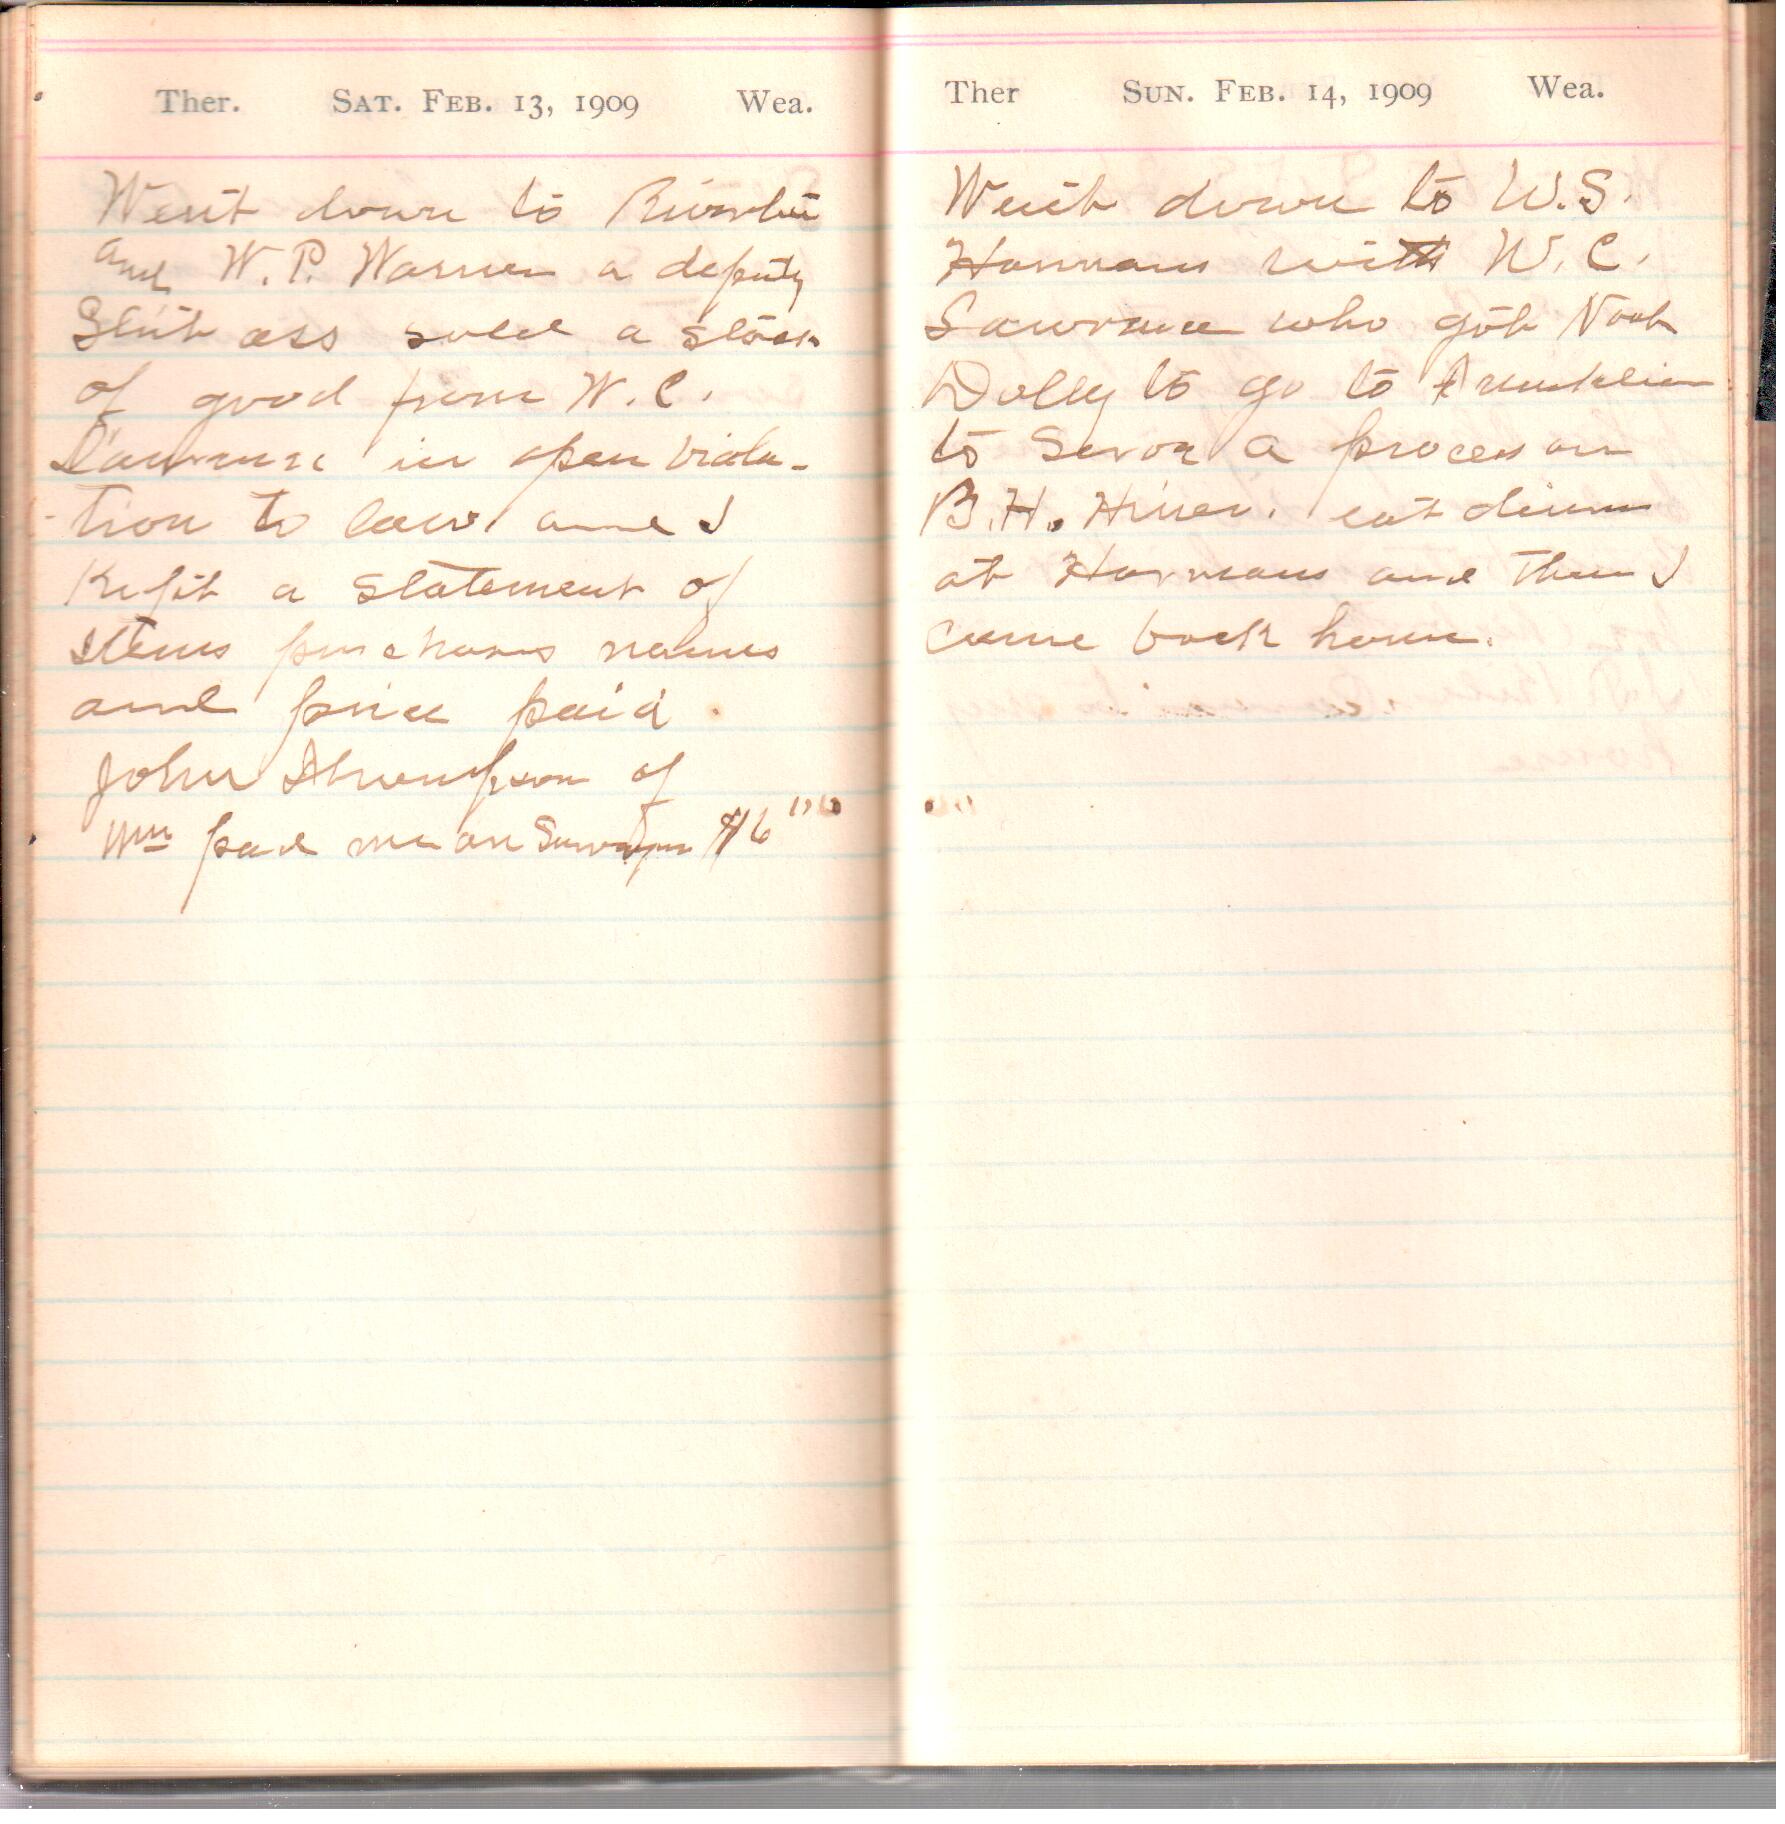 Ther. SAT. FEB. 13, 1909 Wea.
Went down to
and W. P. Warner a deputy
ass sold a stock
of good from W. C.
Lawrence in open viola-
tion to law and I
Kept a statement of
items purchasers names
and price paid.
John Thompson of
Wm paid me on $6 00
Ther SUN. FEB. 14, 1909 Wea.
Went down to W.S.
Harmans with W. C.
Lawrence who got Noah
Dolly to go to Franklin
to serve a process on
B. H. Hiner. eat dinner
at Harmans and then I
came back home.